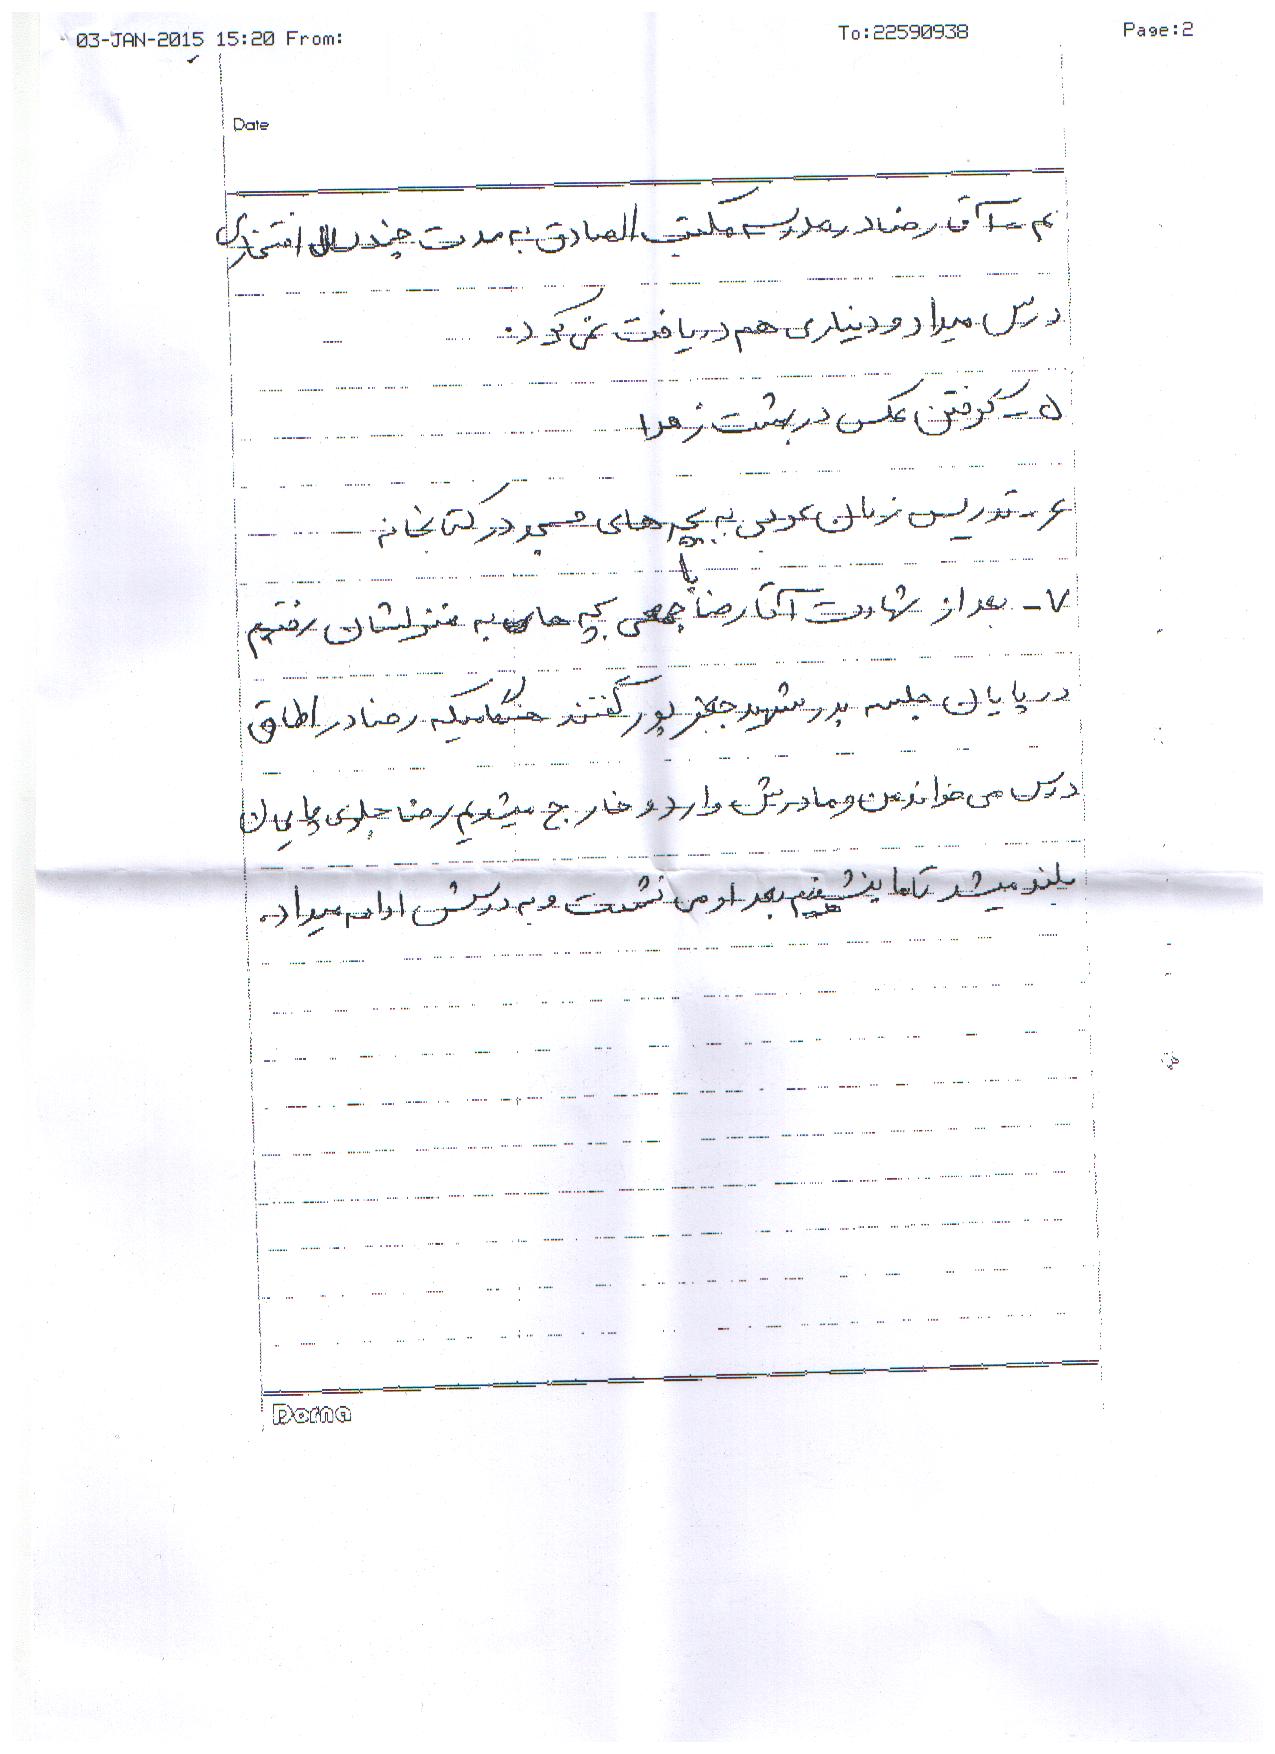 03-JAN-2015 15:20 From: To:22590938 Page:2
Date
۴ - آقا رضا در مدرسه مکتب الصادق به مدت چند سال افتخاری
درس میداد و دیناری هم دریافت نمی کرد.
۵ - گرفتن عکس در بهشت زهرا
۶ - تدریس زبان عربی به بچه های مسجد در کتابخانه
۷ - بعد از شهادت آقا رضا با جمعی بچه های به منزلشان رفتیم
در پایان جلسه پدر شهید جعفر پور گفتند هنگامیکه رضا در اطاق
درس می خواند من و مادرش وارد و خارج میشدیم رضا جلوی پایمان
بلند میشد تا ما بنشینیم بعد او می نشست و به درسش ادامه میداد.
Dorna